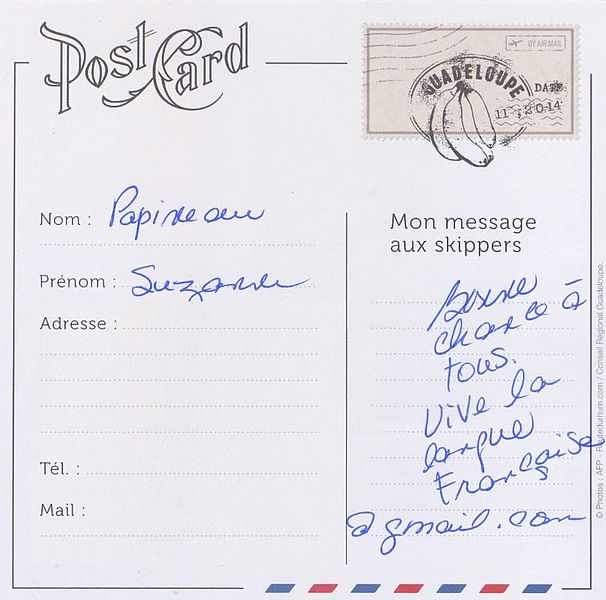 Post Card
BY AIR MAIL
GUADELOUPE
DATE
11 , 2014
Nom : Papineau
Prénom : Suzanne
Adresse :
Tél. :
Mail :
Mon message
aux skippers
Bonne
chance à
tous.
Vive la
langue
Française
@gmail.com
© Photos : AFP - Routedurhum.com / Conseil Régional Guadeloupe.